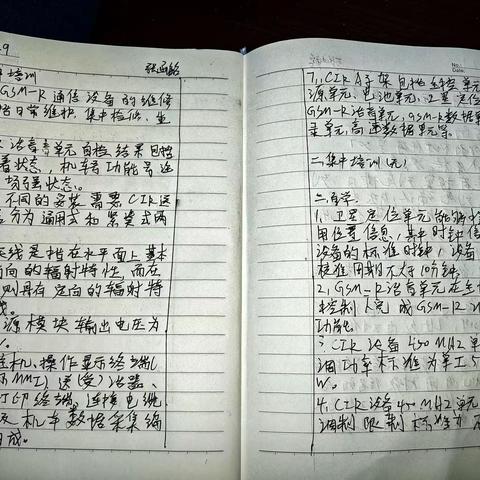 9
培训
GSM-R 通信设备的维修
日常维护、集中检修、
话音单元自检结果包括
着状态，机车号功能号
场强状态。
不同的安装需要CIR
分为通用式和紧凑式两
天线是指在水平面上基本
向的辐射特性，而在
则具有定向的辐射特
源模块输出电压为
主机、操作显示终端(
MMI)送(受)话器、
打印终端、连接电缆
及机车数据采集编
成。
No.
Date
7、CIR A子架包括主控单元
源单元、电池单元、卫星定位
GSM-R话音单元，GSM-R数据单
录单元，高速数据单元等。
二集中培训(无)
三自学
1. 卫星定位单元能够
用位置信息，其中时钟信
设备的标准时钟，设备
校准周期不大于10分钟。
2. GSM-R话音单元在主
控制下完成GSM-R
功能。
3 CIR设备450MHz单
调功率标准为单工5
W。
4. CIR设备450MHz单元
调制限制标准